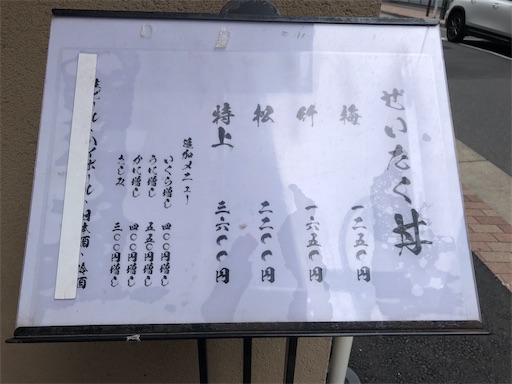 ぜいたく丼
梅 一二五〇円
竹 一六五〇円
松 二二〇〇円
特上 三六〇〇円
追加メニュー
いくら増し 四〇〇円増し
うに増し 五五〇円増し
かに増し 四〇〇円増し
しじみ 三〇〇円増し